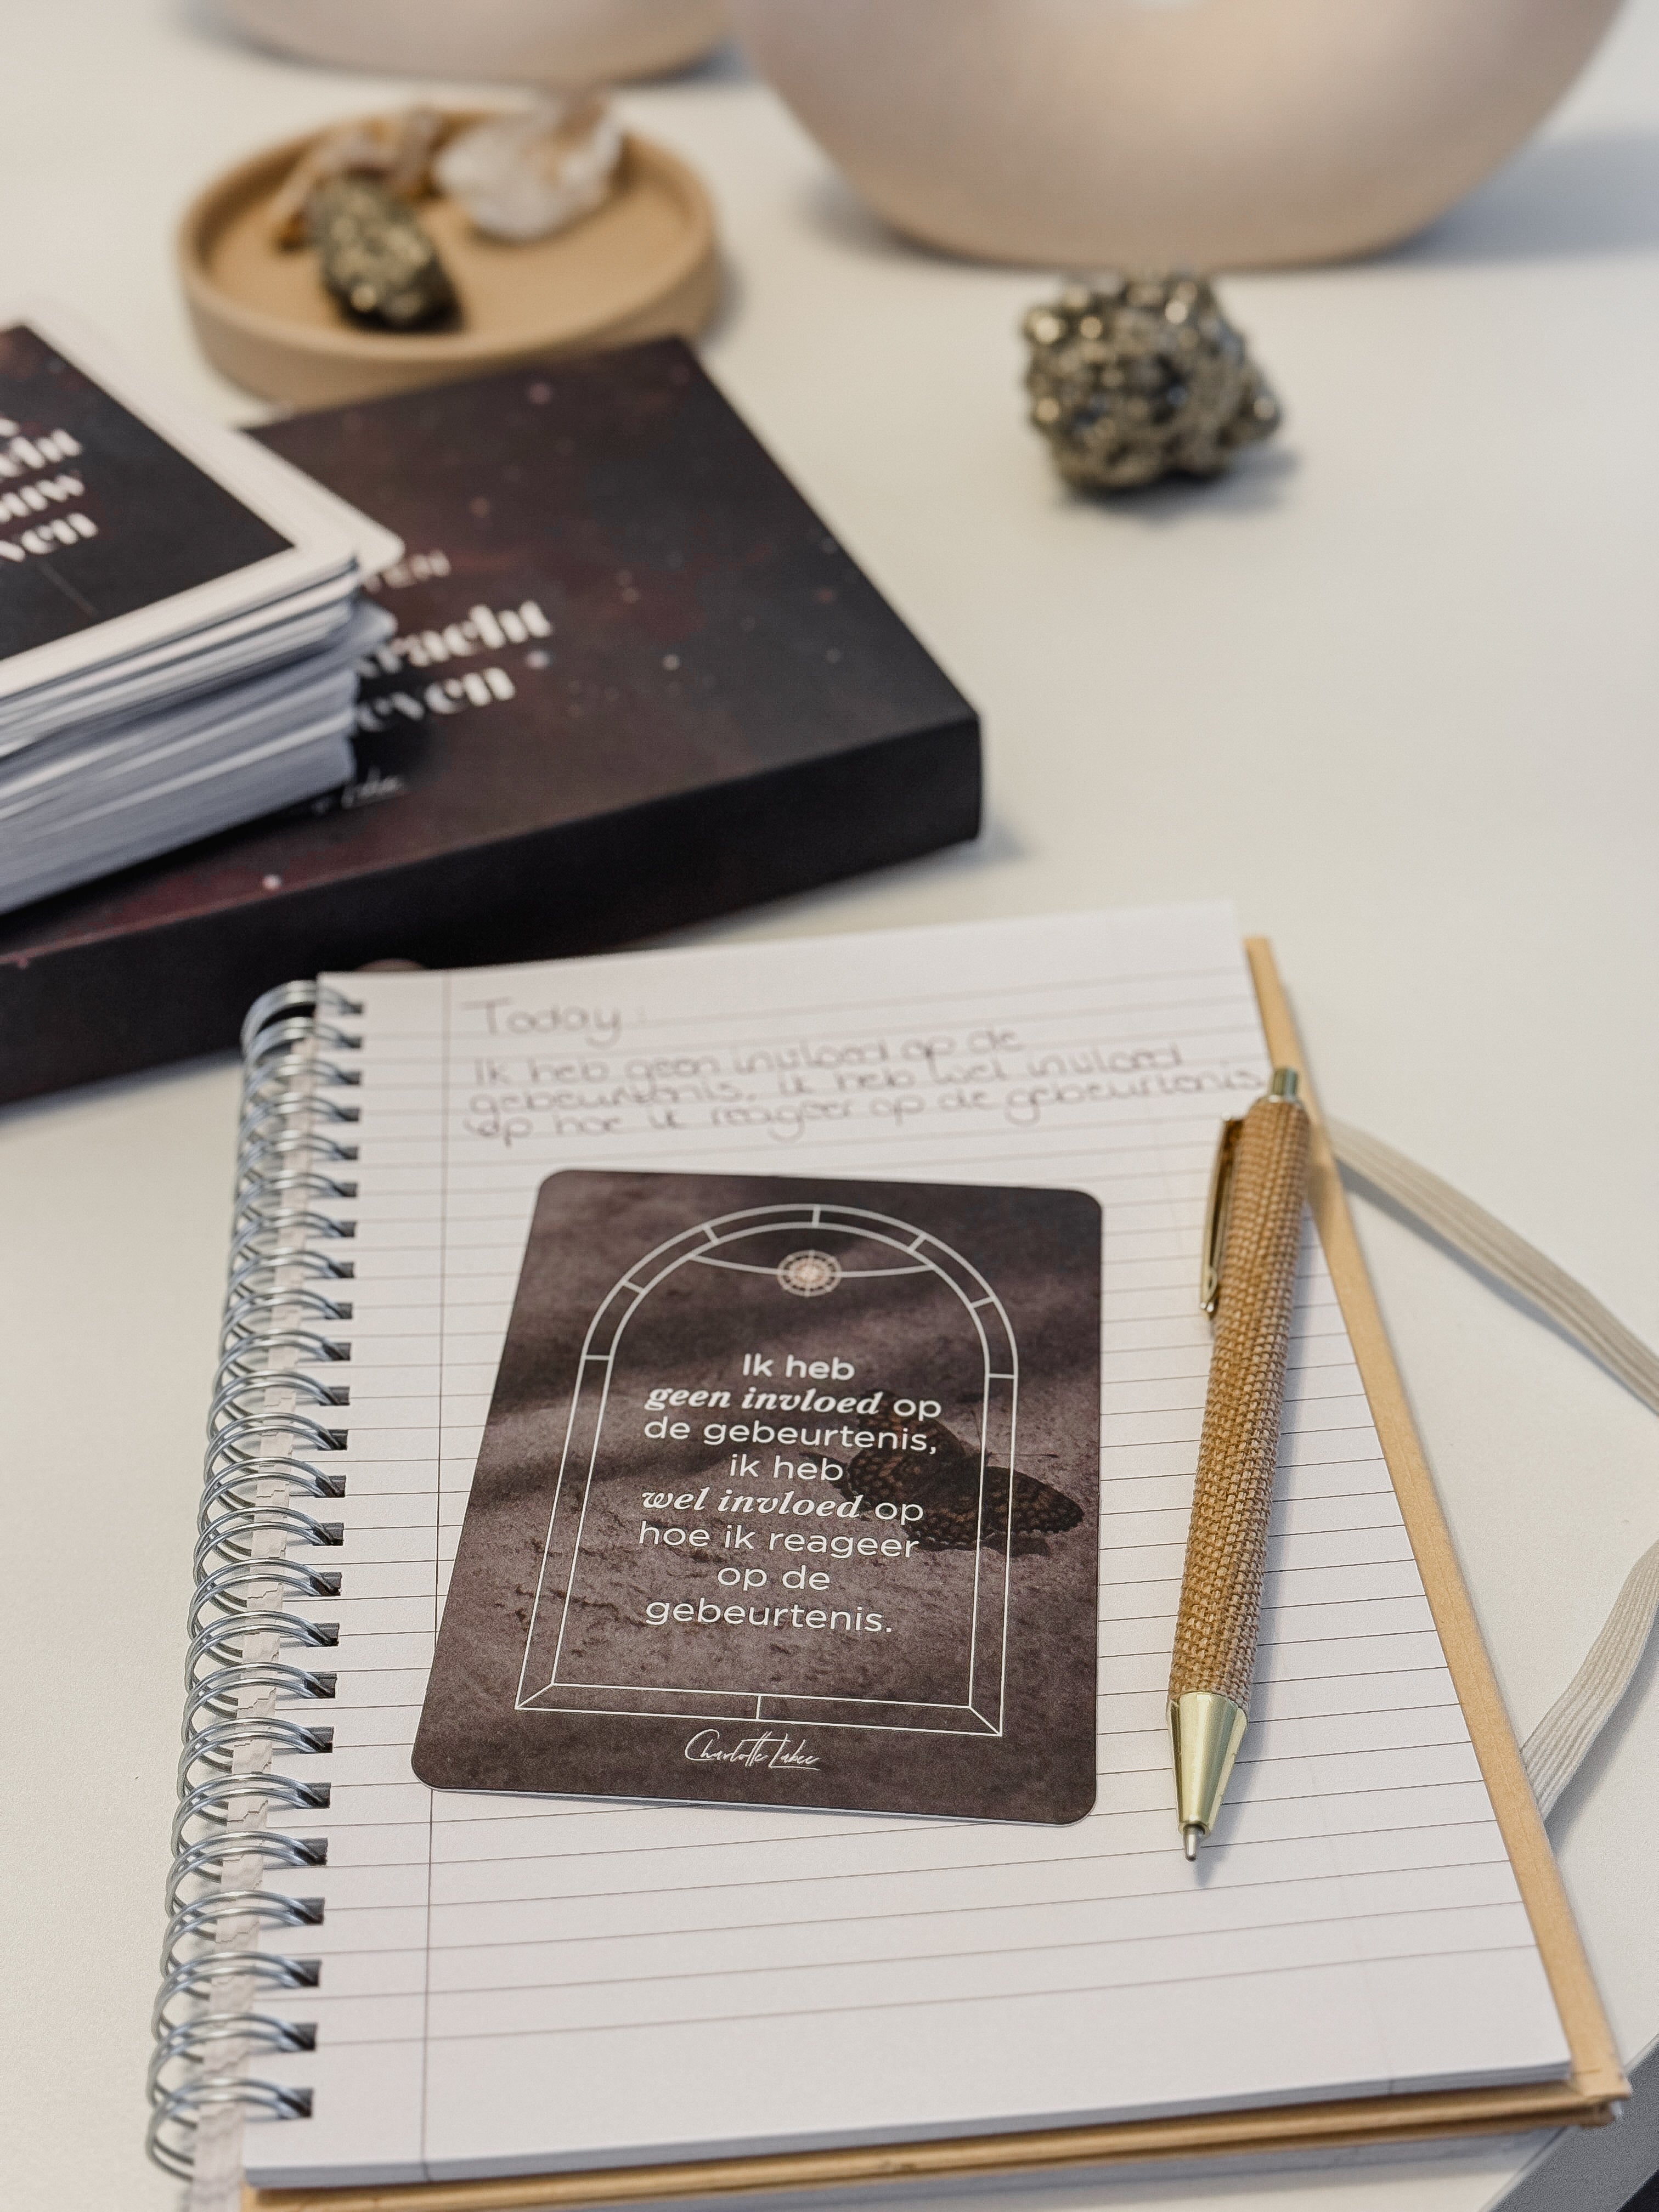 kracht
even
Today:
Ik heb geen invloed op de
gebeurtenis, ik heb wel invloed
op hoe ik reageer op de gebeurtenis
Ik heb
geen invloed op
de gebeurtenis,
ik heb
wel invloed op
hoe ik reageer
op de
gebeurtenis.
Charlotte Labee